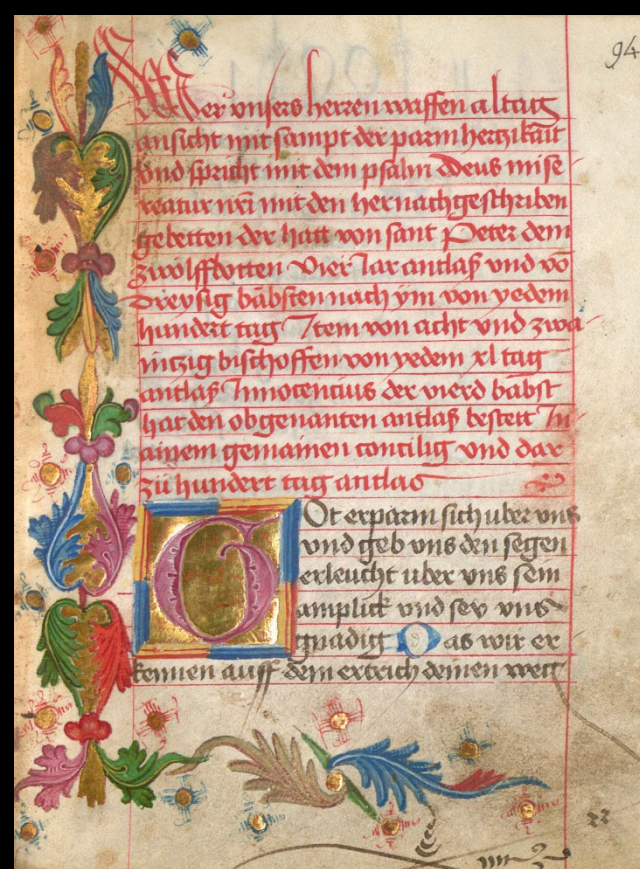 94
Wer vnsers herren waffen altag
ansicht mit sampt der parmhertzikait
vnd spricht mit dem psalm Deus mise
reatur nr̄i mit den hernachgeschriben
gebetten der hatt von sant Peter dem
zwölffbotten Vier Jar antlaß vnd vō
dreysig bäbsten nach ym von yedem
hundert tag Item von acht vnd zwa
intzig bischoffen von yedem xl tag
antlaß Innocencius der vierd babst
hat den obgenanten antlaß bestett In
ainem gemainen concilig vnd dar
zů hundert tag antlas
Got erparm sich uber vns
vnd geb vns den segen
erleucht uber vns sein
amplick vnd sey vns
gnadig Das wir er
kennen auff dem ertrich deinen weg